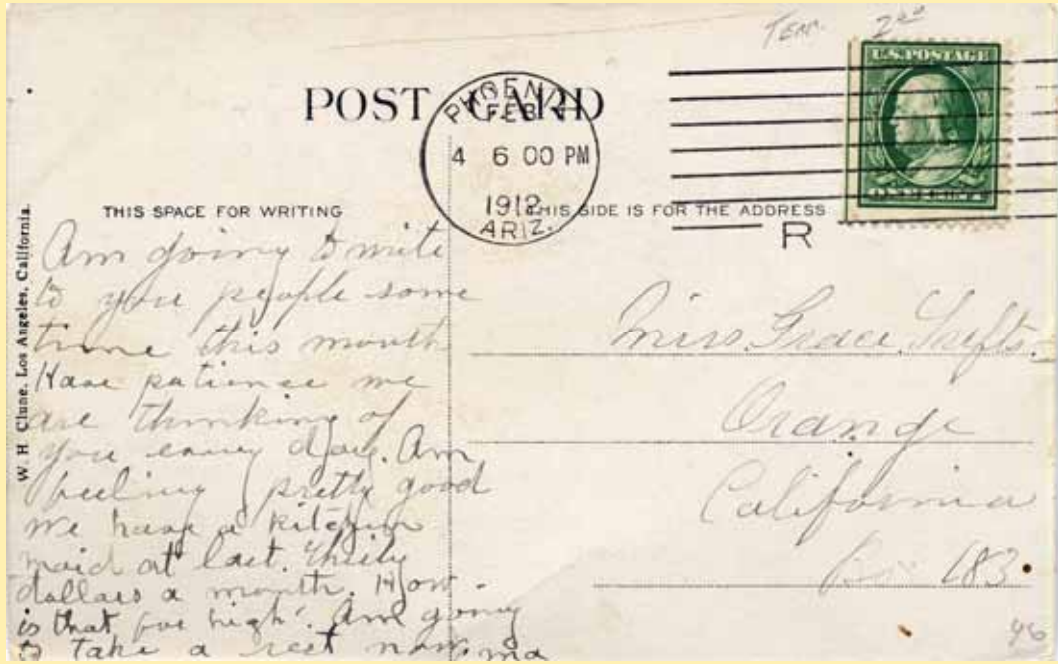 Terr. 2nd
U.S. POSTAGE
POST CARD
PHOENIX
FEB
4 6 00 PM
1912
ARIZ.
R
THIS SPACE FOR WRITING
THIS SIDE IS FOR THE ADDRESS
W. H. Clune, Los Angeles, California.
Am going to write
to you people some
time this month
Have patience we
are thinking of
you every day. Am
feeling pretty good
We have a kitchen
maid at last. Thirty
dollars a month. How
is that for high. Am going
to take a rest now ma
Miss. Grace
Orange
California
Box 183.
46